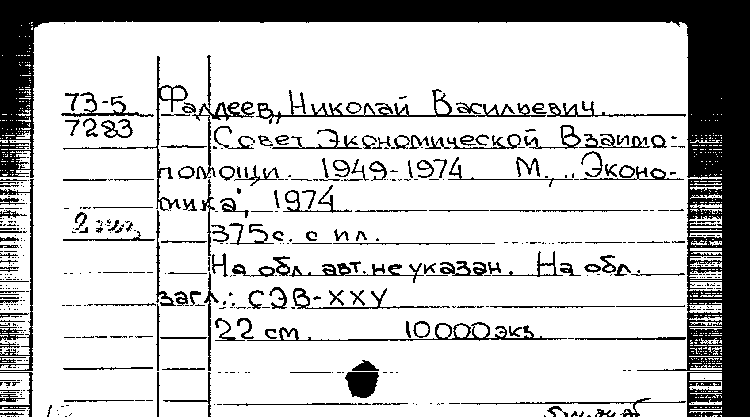 73-5
7283
Фаддеев, Николай Васильевич.
Совет Экономической Взаимо-
помощи. 1949-1974. М., „Эконо-
мика", 1974
2 экз,
375с. с ил.
На обл. авт. не указан. На обл.
загл.: СЭВ-XXV
22 см. 10000 экз.